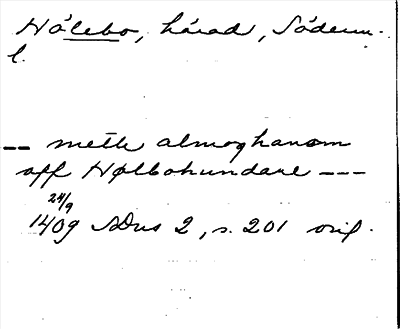 Hålebo, härad, Söderm.
l.
-- meth almoghanom
aff Hølbohundare ---
24/9
1409 SDns 2, s. 201 orig.